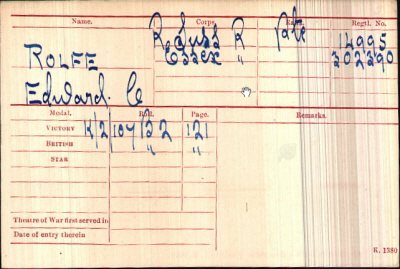 Name. Corps. Rank. Regtl. No.
R Suss R Pte 14995
ROLFE Essex R " 302390
Edward. C
Medal. Roll. Page. Remarks.
VICTORY K/2/104/B2 121
BRITISH " "
STAR
Theatre of War first served in
Date of entry therein
K. 1380